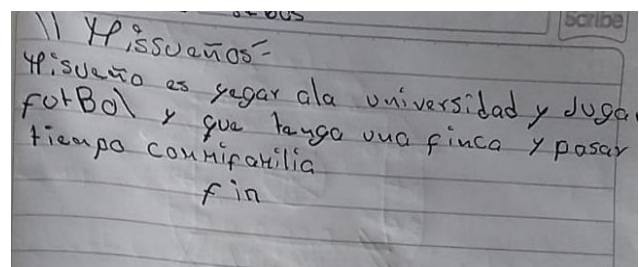 scribe
11 Missueños=
Misueño es yegar ala universidad y Juga
futBol y que tenga una finca y pasar
tiempo conmifamilia
fin